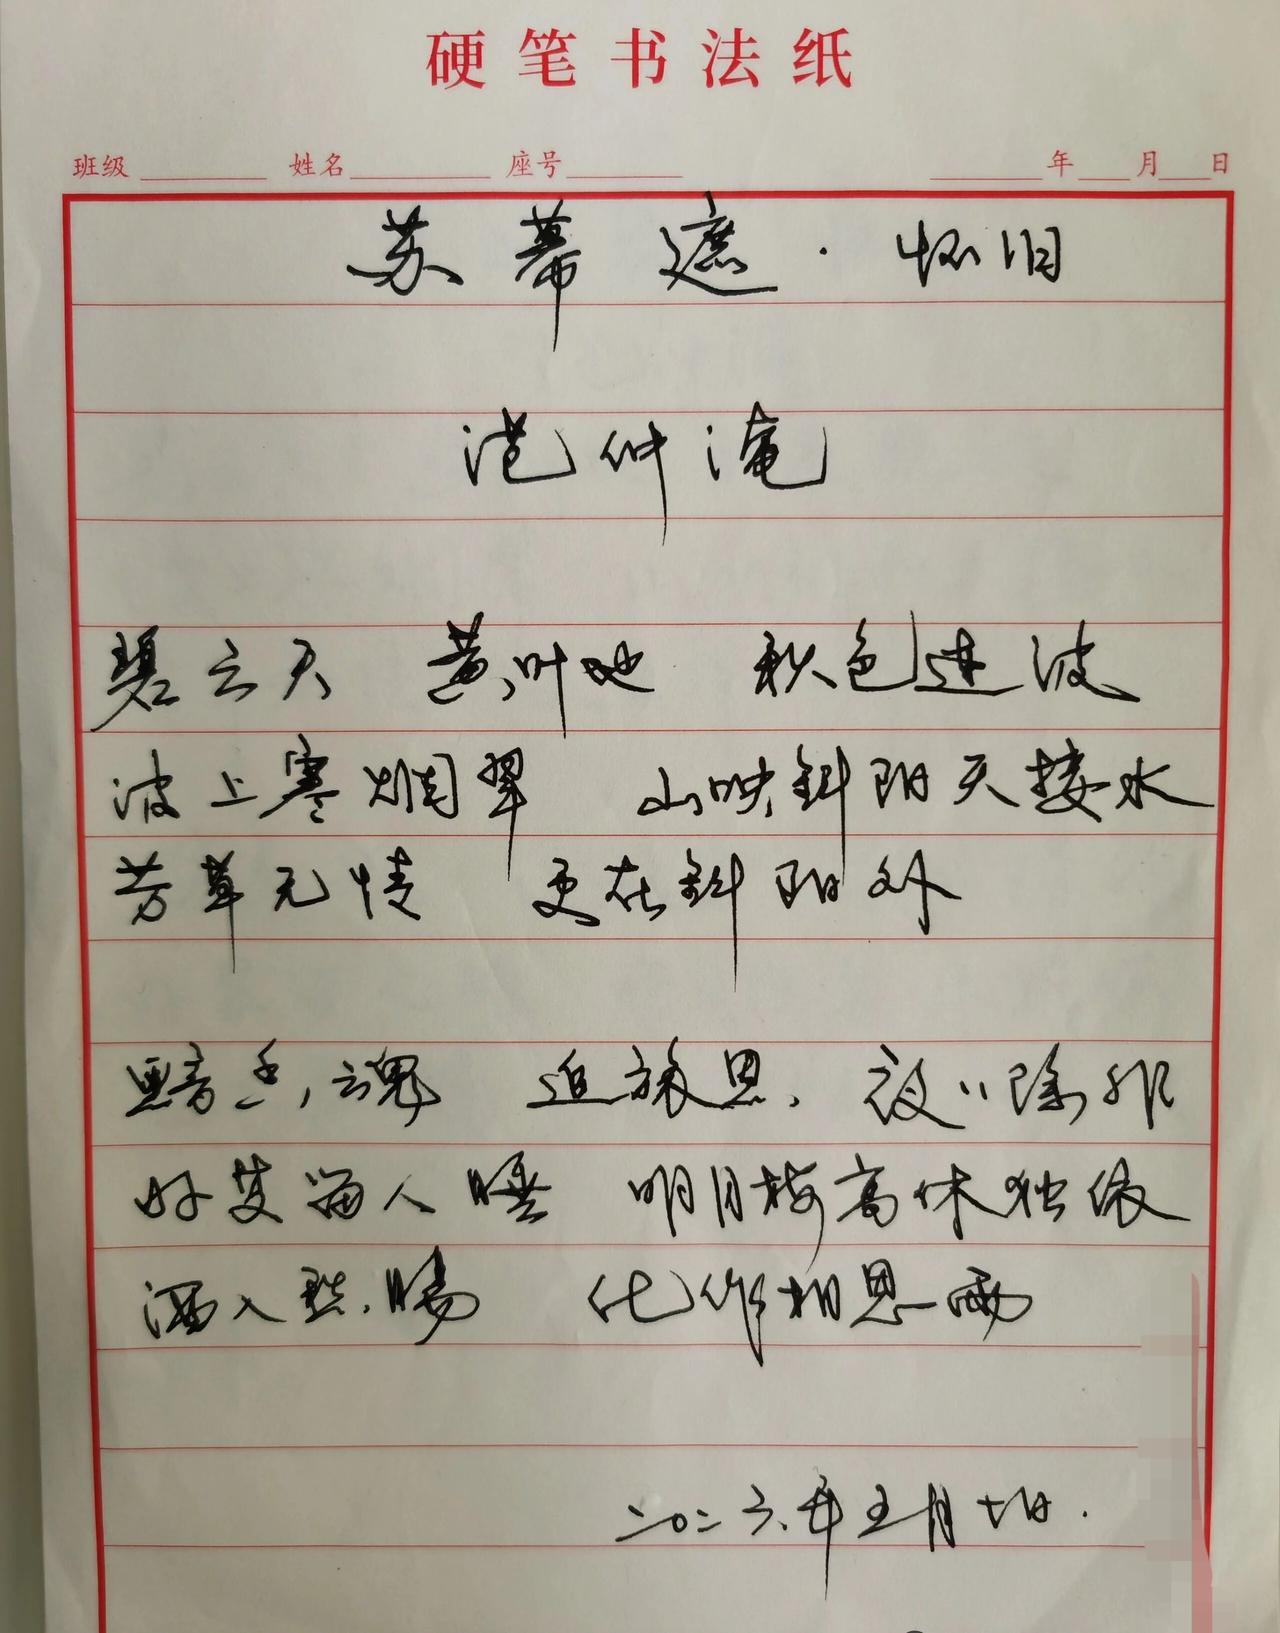 硬笔书法纸
班级 姓名 座号 年 月 日
苏幕遮·怀旧
范仲淹
碧云天 黄叶地 秋色连波
波上寒烟翠 山映斜阳天接水
芳草无情 更在斜阳外
黯乡魂 追旅思 夜夜除非
好梦留人睡 明月楼高休独依
酒入愁肠 化作相思雨
二〇二六年五月七日.